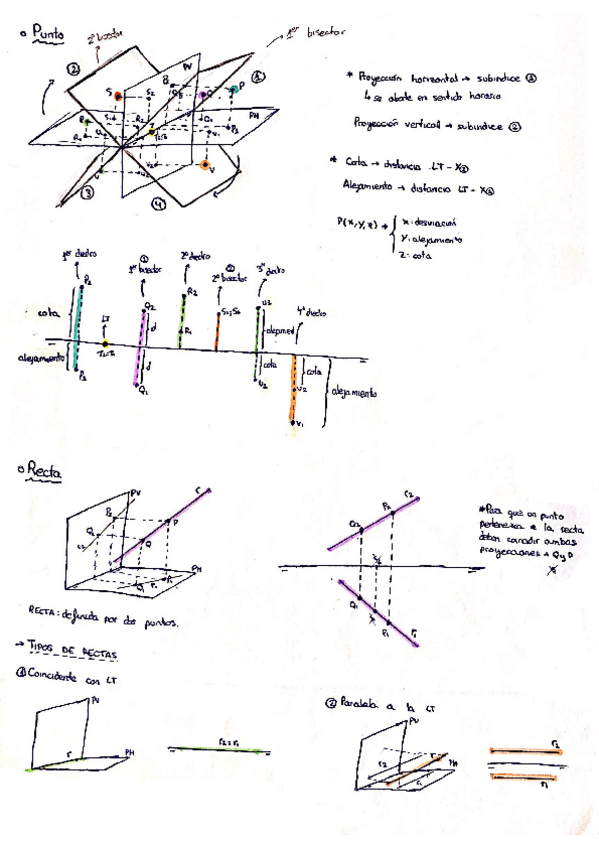 o Punto
2º bisector
1er bisector
PV
PH
* Proyección horizontal → subíndice ①
↳ se abate en sentido horario
Proyección vertical → subíndice ②
* Cota → distancia LT - X②
Alejamiento → distancia LT - X①
P(x,y,z) → { x: desviación
y: alejamiento
z: cota
1er diedro
① 1er bisector
2º diedro
② 2º bisector
3er diedro
4º diedro
P2
LT
Q2
R2
R1
cota
d
alejamiento
P1
d
Q1
cota
V2
cota
alejamiento
V1
o Recta
PV
r
P2
P
Q2
Q
PH
Q1
r2
P2
Q2
Q1
P1
r1
*Para que un punto
pertenezca a la recta
deben coincidir ambas
proyecciones → Q y P
RECTA: definida por dos puntos.
→ TIPOS DE RECTAS
① Coincidente con LT
PV
r
PH
r2 = r1
② Paralela a la LT
PV
r
PH
r2
r1
r2
r1